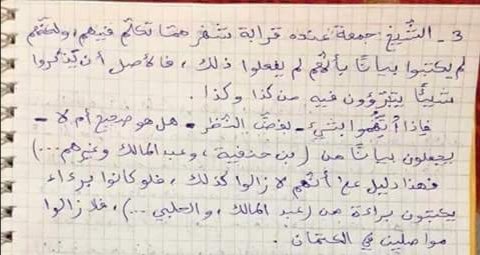 3 - الشّيخ جمعة عنده قرابة شهر ممّا تكلّم فيهم، ولكنّهم
لم يكتبوا بيانًا بأنّهم لم يفعلوا ذلك، فالأصل أن يذكروا
شيئًا يتبرّؤون فيه من كذا وكذا.
فإذا اتُّهموا بشيء - بغضّ النّظر - هل هو صحيح أم لا -
يجعلون بيانًا من (بن حنفية، وعبد المالك وغيرهم ...)
فهذا دليل على أنّهم لا زالوا كذلك، فلو كانوا برءاء
يكتبون براءة من (عبد المالك، والحلبي ...)، فلا زالوا
مواصلين في الكتمان.